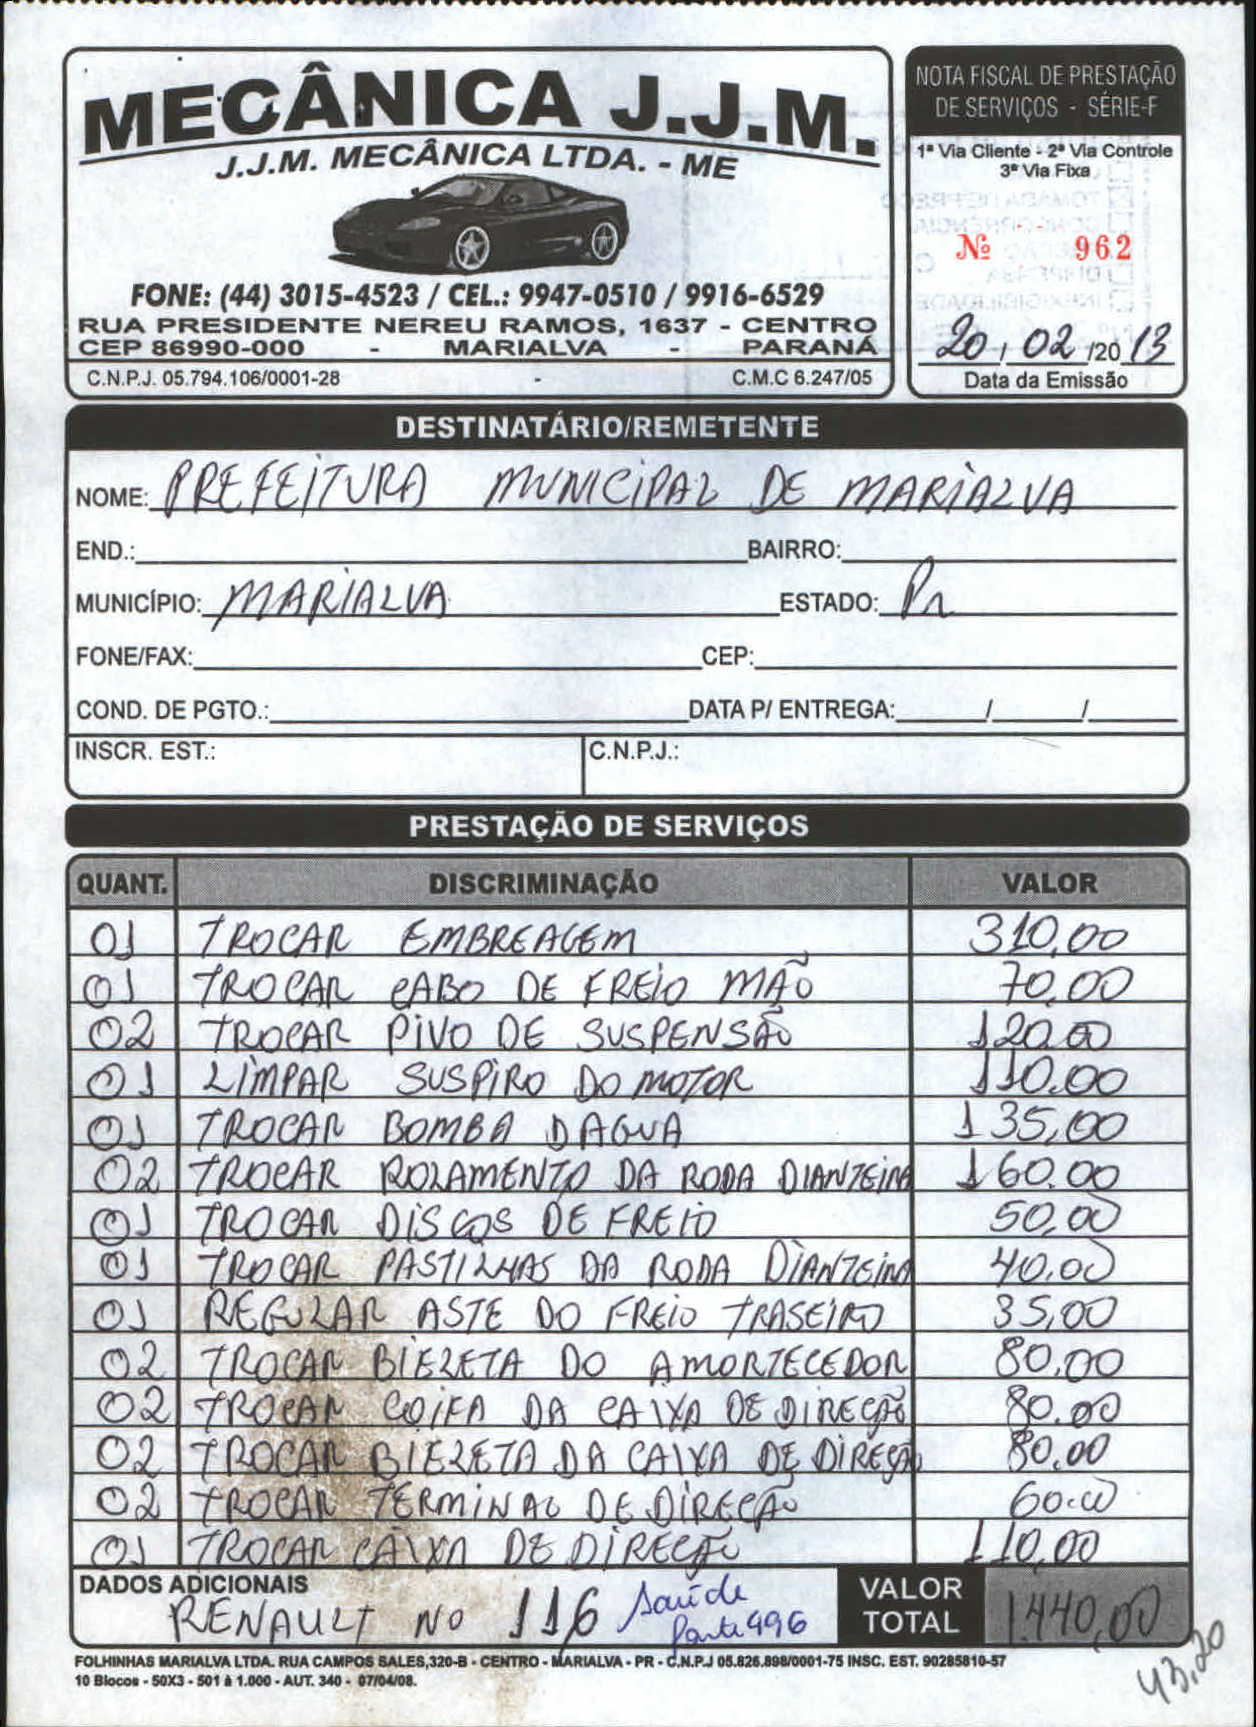 MECÂNICA J.J.M.
J.J.M. MECÂNICA LTDA. - ME
FONE: (44) 3015-4523 / CEL.: 9947-0510 / 9916-6529
RUA PRESIDENTE NEREU RAMOS, 1637 - CENTRO
CEP 86990-000 - MARIALVA - PARANÁ
C.N.P.J. 05.794.106/0001-28 - C.M.C 6.247/05
NOTA FISCAL DE PRESTAÇÃO
DE SERVIÇOS - SÉRIE-F
1ª Via Cliente - 2ª Via Controle
3ª Via Fixa
Nº 962
20 / 02 /20 13
Data da Emissão
DESTINATÁRIO/REMETENTE
NOME: PREFEITURA MUNICIPAL DE MARIALVA
END.: BAIRRO:
MUNICÍPIO: MARIALVA ESTADO: Pr
FONE/FAX: CEP:
COND. DE PGTO.: DATA P/ ENTREGA: / /
INSCR. EST.: C.N.P.J.:
PRESTAÇÃO DE SERVIÇOS
QUANT. DISCRIMINAÇÃO VALOR
01 TROCAR EMBREAGEM 310,00
01 TROCAR CABO DE FREIO MÃO 70,00
02 TROCAR PIVO DE SUSPENSÃO 120,00
01 LIMPAR SUSPIRO DO MOTOR 110,00
01 TROCAR BOMBA DAGUA 135,00
02 TROCAR ROLAMENTO DA RODA DIANTEIRA 160,00
01 TROCAR DISCOS DE FREIO 50,00
01 TROCAR PASTILHAS DA RODA DIANTEIRA 40,00
01 REGULAR ASTE DO FREIO TRASEIRO 35,00
02 TROCAR BIELETA DO AMORTECEDOR 80,00
02 TROCAR COIFA DA CAIXA DE DIREÇÃO 80,00
02 TROCAR BIELETA DA CAIXA DE DIREÇÃO 80,00
02 TROCAR TERMINAL DE DIREÇÃO 60,00
01 TROCAR CAIXA DE DIREÇÃO 110,00
DADOS ADICIONAIS
RENAULT NO 116 Saúde
496
VALOR
TOTAL 1.440,00
43,20
FOLHINHAS MARIALVA LTDA. RUA CAMPOS SALES,320-B - CENTRO - MARIALVA - PR - C.N.P.J 05.826.898/0001-75 INSC. EST. 90285810-57
10 Blocos - 50X3 - 501 à 1.000 - AUT. 340 - 07/04/08.